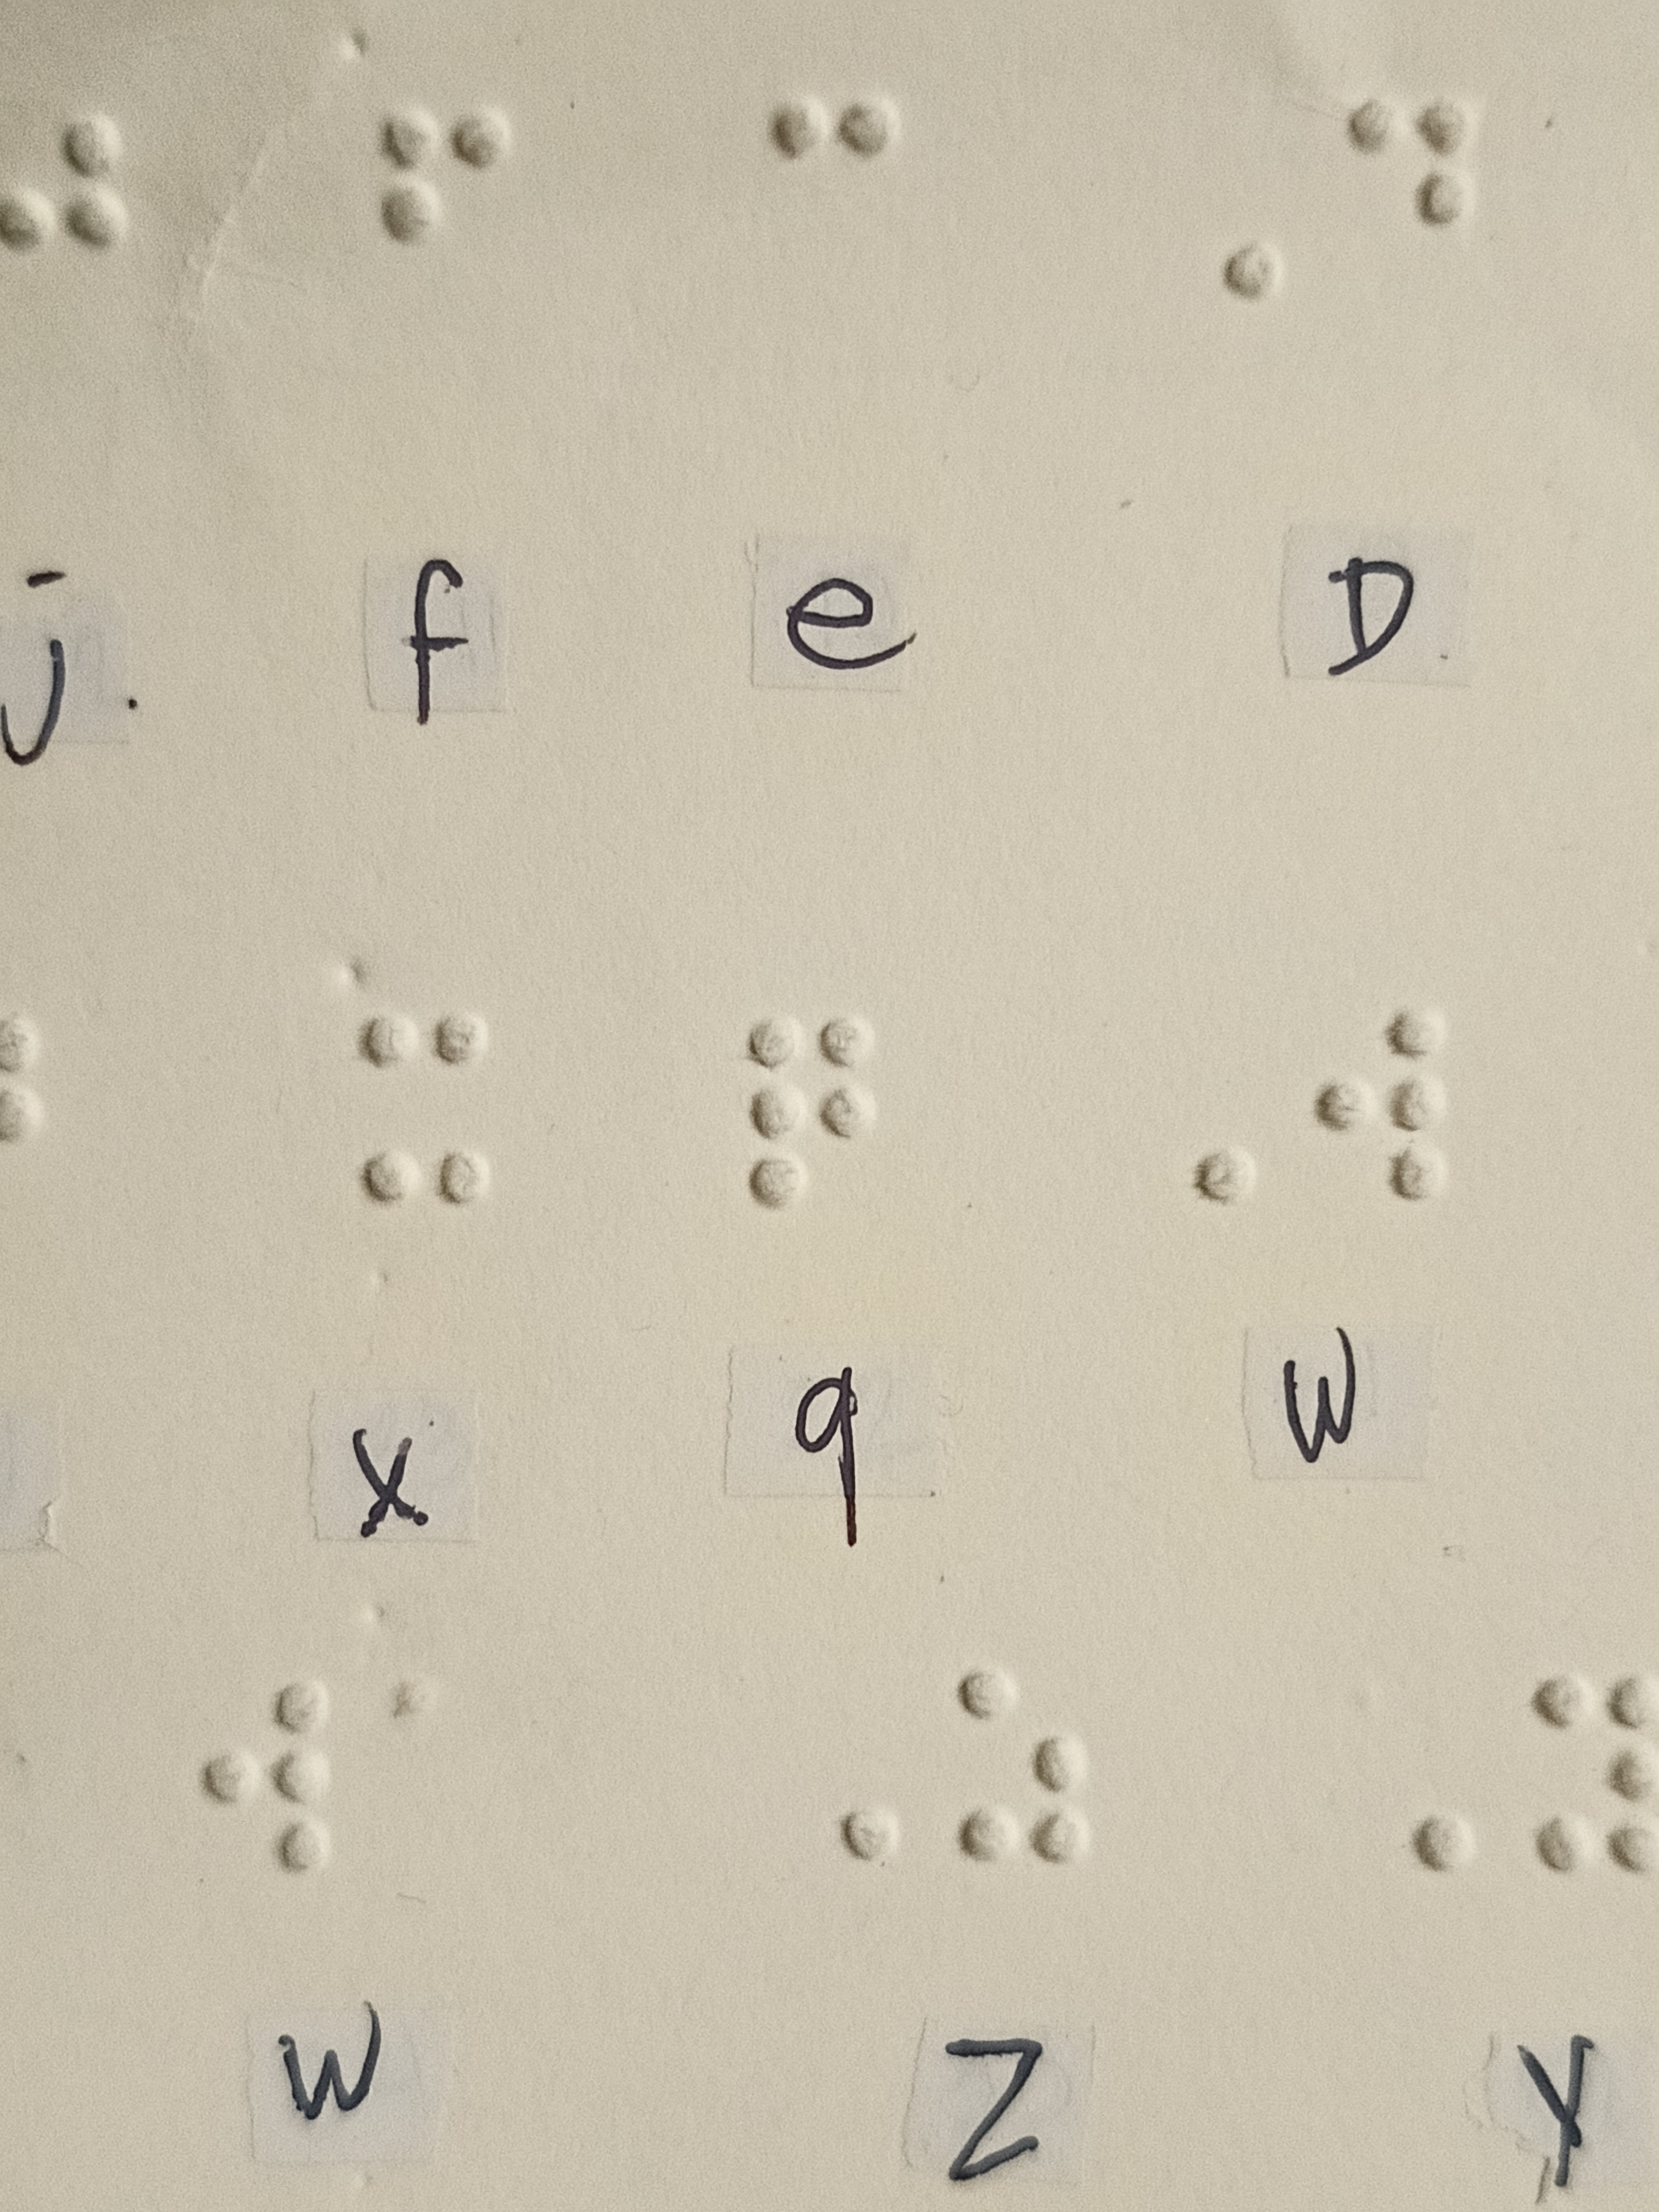 ⠚ ⠋ ⠉ ⠠⠙
j f e D
⠭ ⠟ ⠠⠺
x q W
⠺ ⠠⠵ ⠠⠽
w Z Y